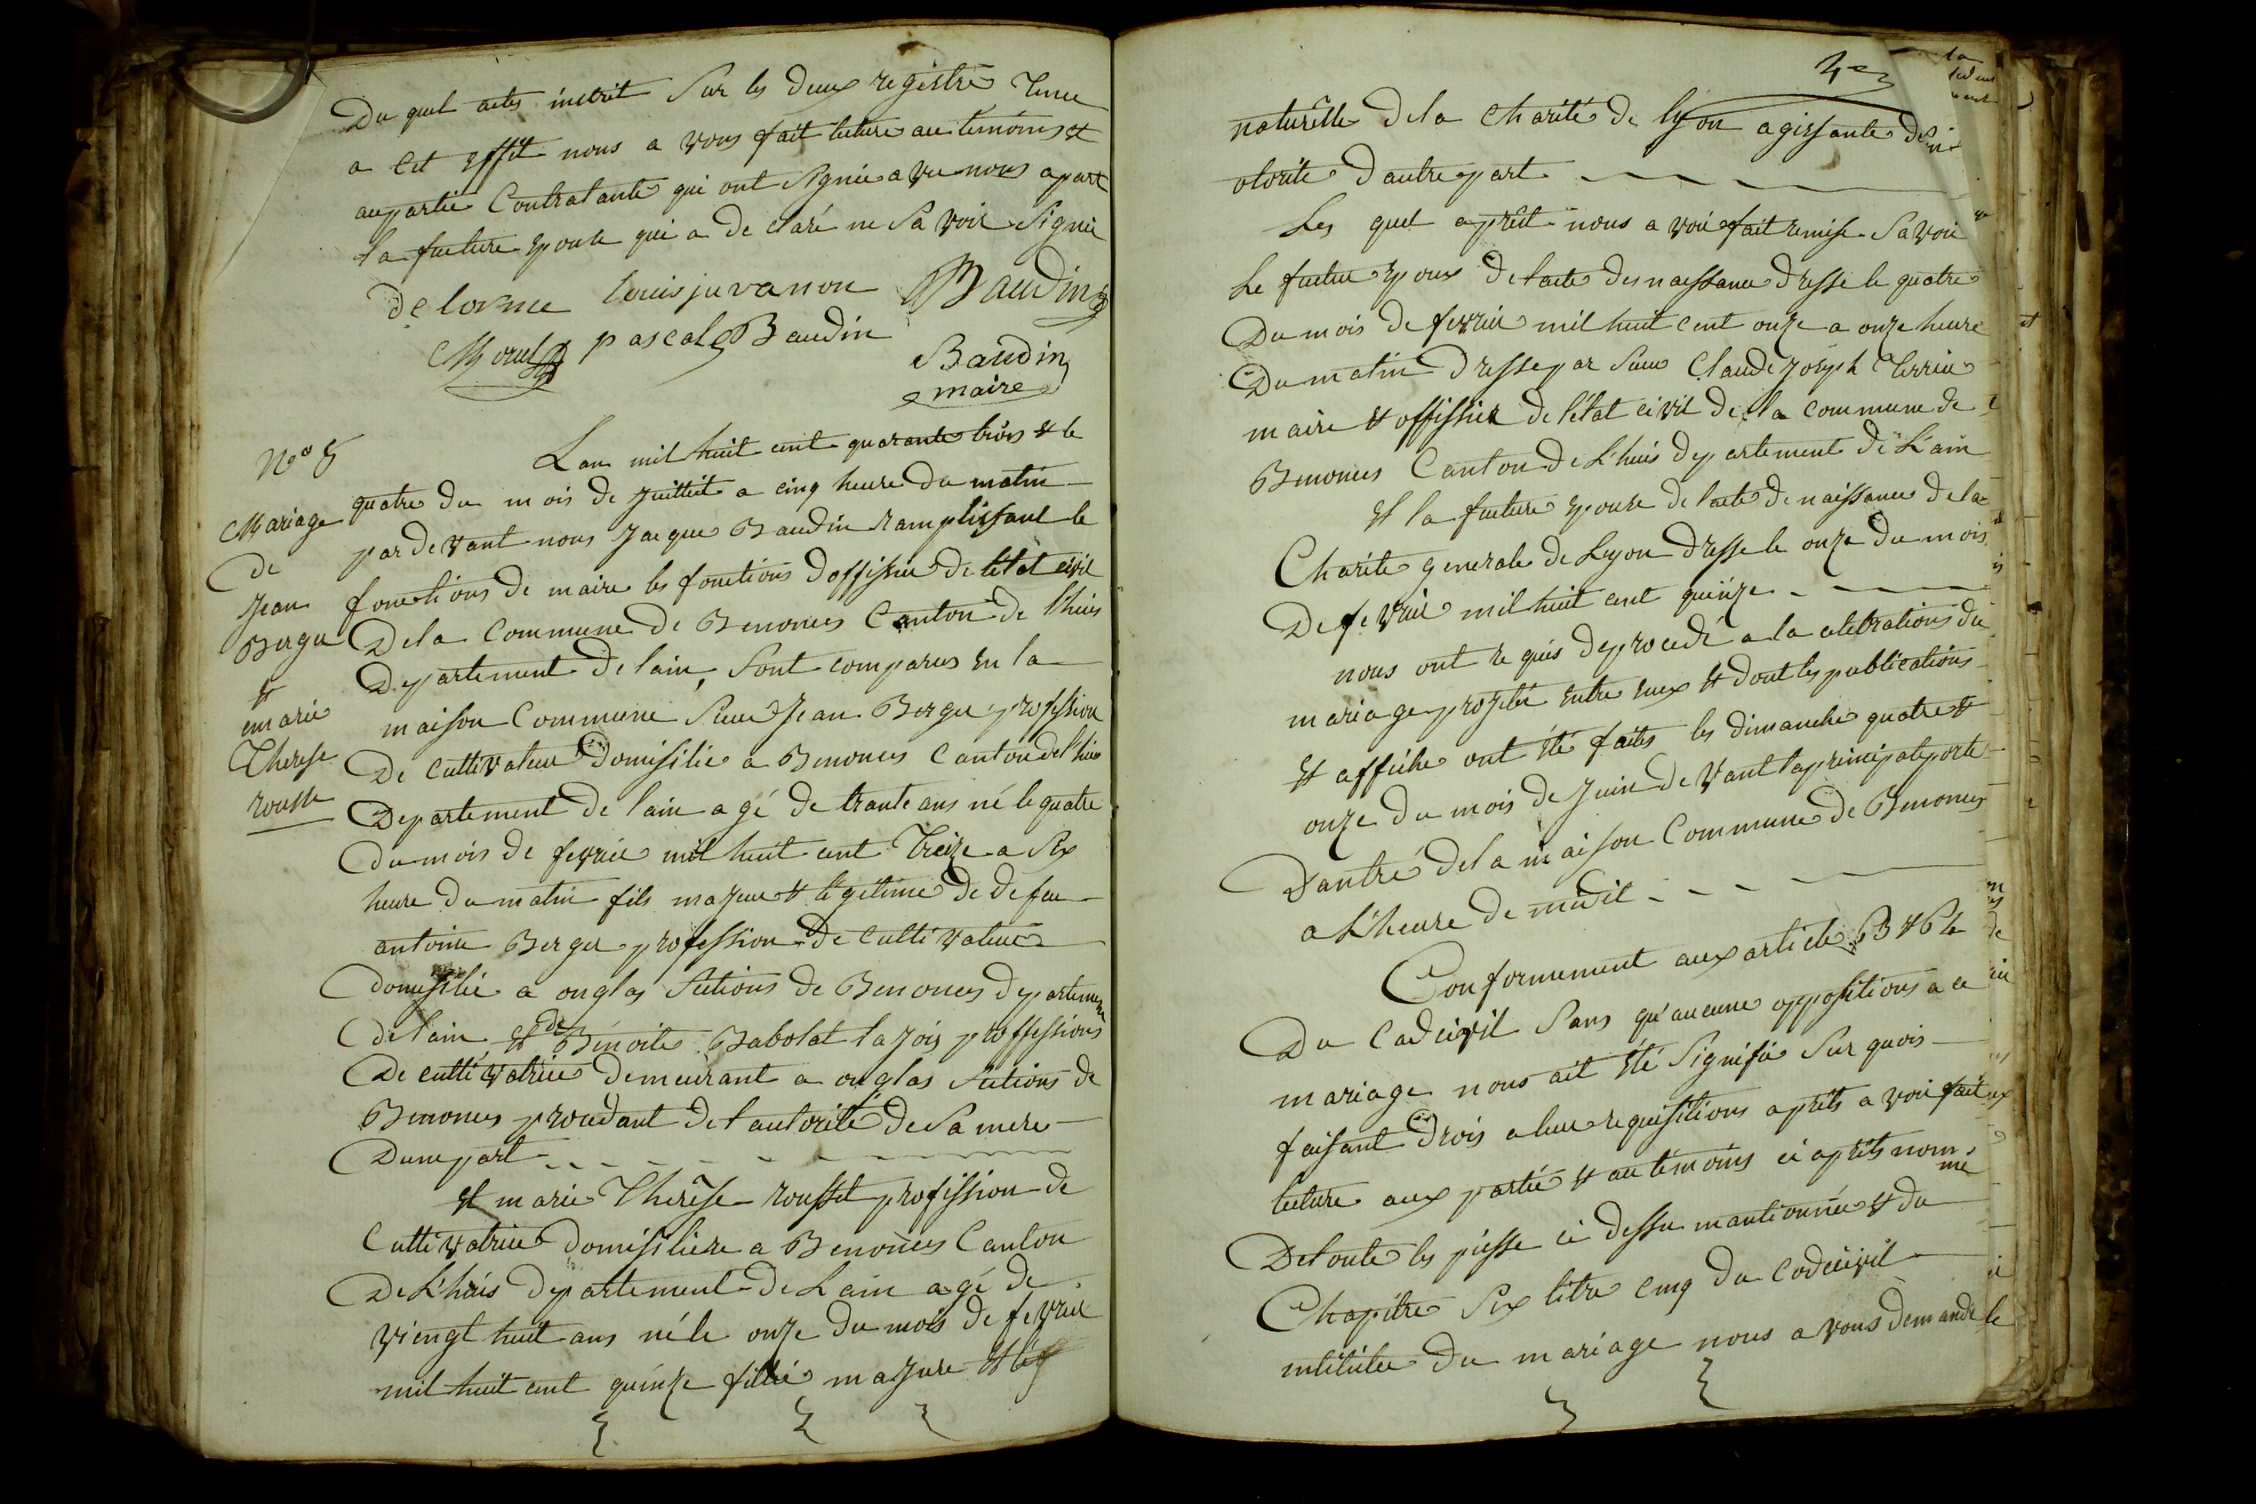 Du quel actes inscrit Sur les deux registre Tenue
a Cet Effet nous a vons fait lecture au temoins &
au partie Contratante qui ont Signée a vec nous apart
la future Epouse qui a de claré ne Sa voir Signée
delorme louis juvanon Baudin
Morel pascal Baudin
Baudin
maire
N° 5
Mariage
de
Jean
Berger
&
marie
Therese
rousse
Lan mil huit cent quarante trois & le
quatre du mois de Juillet a cinq heure du matin
par devant nous Jacque Baudin ramplissant le
fonctions de maire les fonctions doffissier de létat civil
Dela Commune de Benonces Canton de l'huis
Departement de lain, Sont comparus En la
maison Commune Sieur Jean Berger profession
De Cultivateur Domisilié a Benonces Canton de l'huis
Departement de lain a gé de trante ans né le quatre
du mois de fevrier mil huit cent Treize a Six
heure du matin fils majeur & légitime de defeu
antoine Berger profession de Cultivateur
domisilié a onglas Sections de Benonces departement
de lain & de Bénoite Babolat lajois proffessions
De cultivatrice demeurant a onglas Sections de
Benonces procedant de l autorité de Sa mere
Dune part
& marie Thérèse rousset profession de
Cultivatrice Domisiliere a Benonces Canton
De L'huis departement de Lain agé de
vienght huit ans né le onze du mois de fevrier
mil huit cent quinze fille majure &
naturelle dela Charité de lyon agissante de
otorite dautre part
Les quel aprêt nous a voir fait remise Savoir
Le future Epoux de lacte des naissance dresse le quatre
Du mois de fevrier mil huit cent onze a onze heure
Du matin Dresse par Sieur Claude Joseph Terrier
maire & offissier de létat civil de la commune de
Benonces Canton de L'huis departement de L'ain
& la future Epouse de lacte de naissance de la
Charite generale de Luyon dresse le onze du mois
De fevrier mil huit cent quinze
nous ont re quis de procedé a la celebrations du
mariage projetée entre eux & dont les publications
& affiche ont été faites les dimanche quatre &
onze du mois de Juin de vant la principale porte
Dantré dela maison Commune de Benonces
a L'heure de midit
Conformement aux article 63 & 64
Du Cadecivil Sans qu'aucune oppositions a ce
mariage nous ait été Signifié Sur quois
faisant drois a leur requisitions aprêts a voir fait
lecture aux partié & au témoins ci aprêts nom
mé
De toute les piesse ci dessu mantionnée & du
Chapitre Six titre Cinq du codecivil
intitulée du mariage nous a vons demande